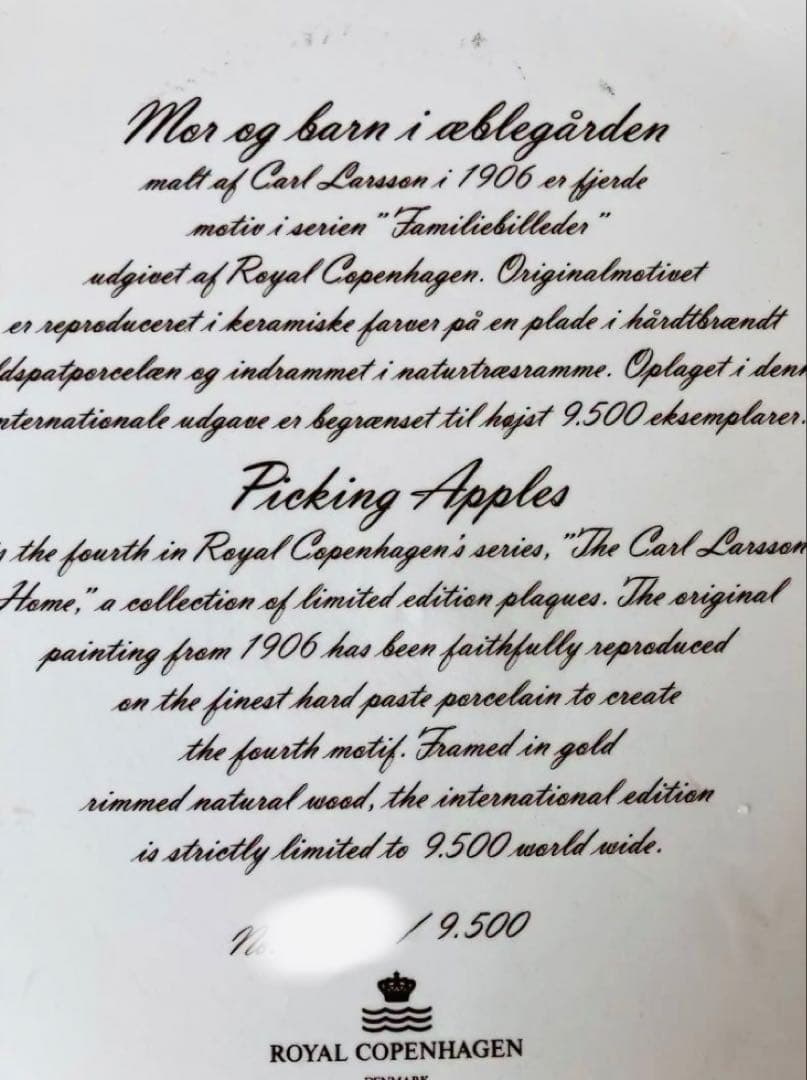 Mor og barn i æblegården
malt af Carl Larsson i 1906 er fjerde
motiv i serien "Familiebilleder"
udgivet af Royal Copenhagen. Originalmotivet
er reproduceret i keramiske farver på en plade i hårdtbrændt
ldspatporcelæn og indrammet i naturtræsramme. Oplaget i denn
nternationale udgave er begrænset til højst 9.500 eksemplarer.
Picking Apples
s the fourth in Royal Copenhagen's series, "The Carl Larsson
Home," a collection of limited edition plaques. The original
painting from 1906 has been faithfully reproduced
on the finest hard paste porcelain to create
the fourth motif. Framed in gold
rimmed natural wood, the international edition
is strictly limited to 9.500 world wide.
No. / 9.500
ROYAL COPENHAGEN
DENMARK